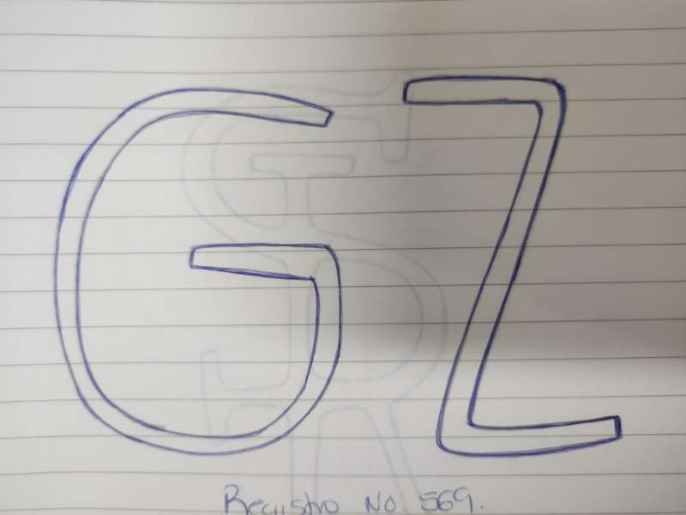 GZ
Registro No 569.